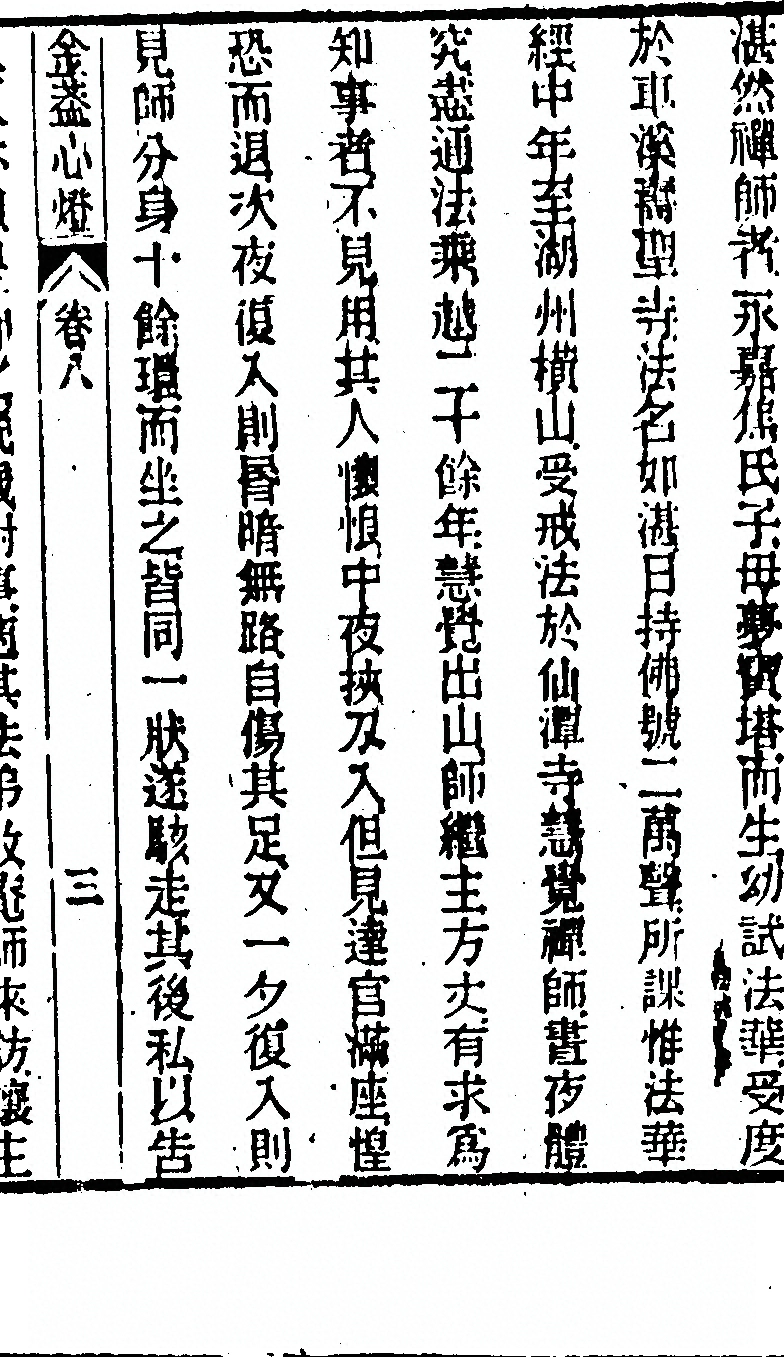 湛然禪師者永嘉焦氏子母夢寶塔而生幼試法華受度
於車溪壽聖寺法名如湛日持佛號二萬聲所課惟法華
經中年至湖州橫山受戒法於仙潭寺慧覺禪師晝夜體
究盡通法乘越二十餘年慧覺出山師繼主方丈有求爲
知事者不見用其人懷恨中夜挾刄入但見達官滿座惶
恐而退次夜復入則昏暗無路自傷其足又一夕復入則
見師分身十餘環而坐之皆同一狀遂駭走其後私以告
金葢心燈 卷八 三